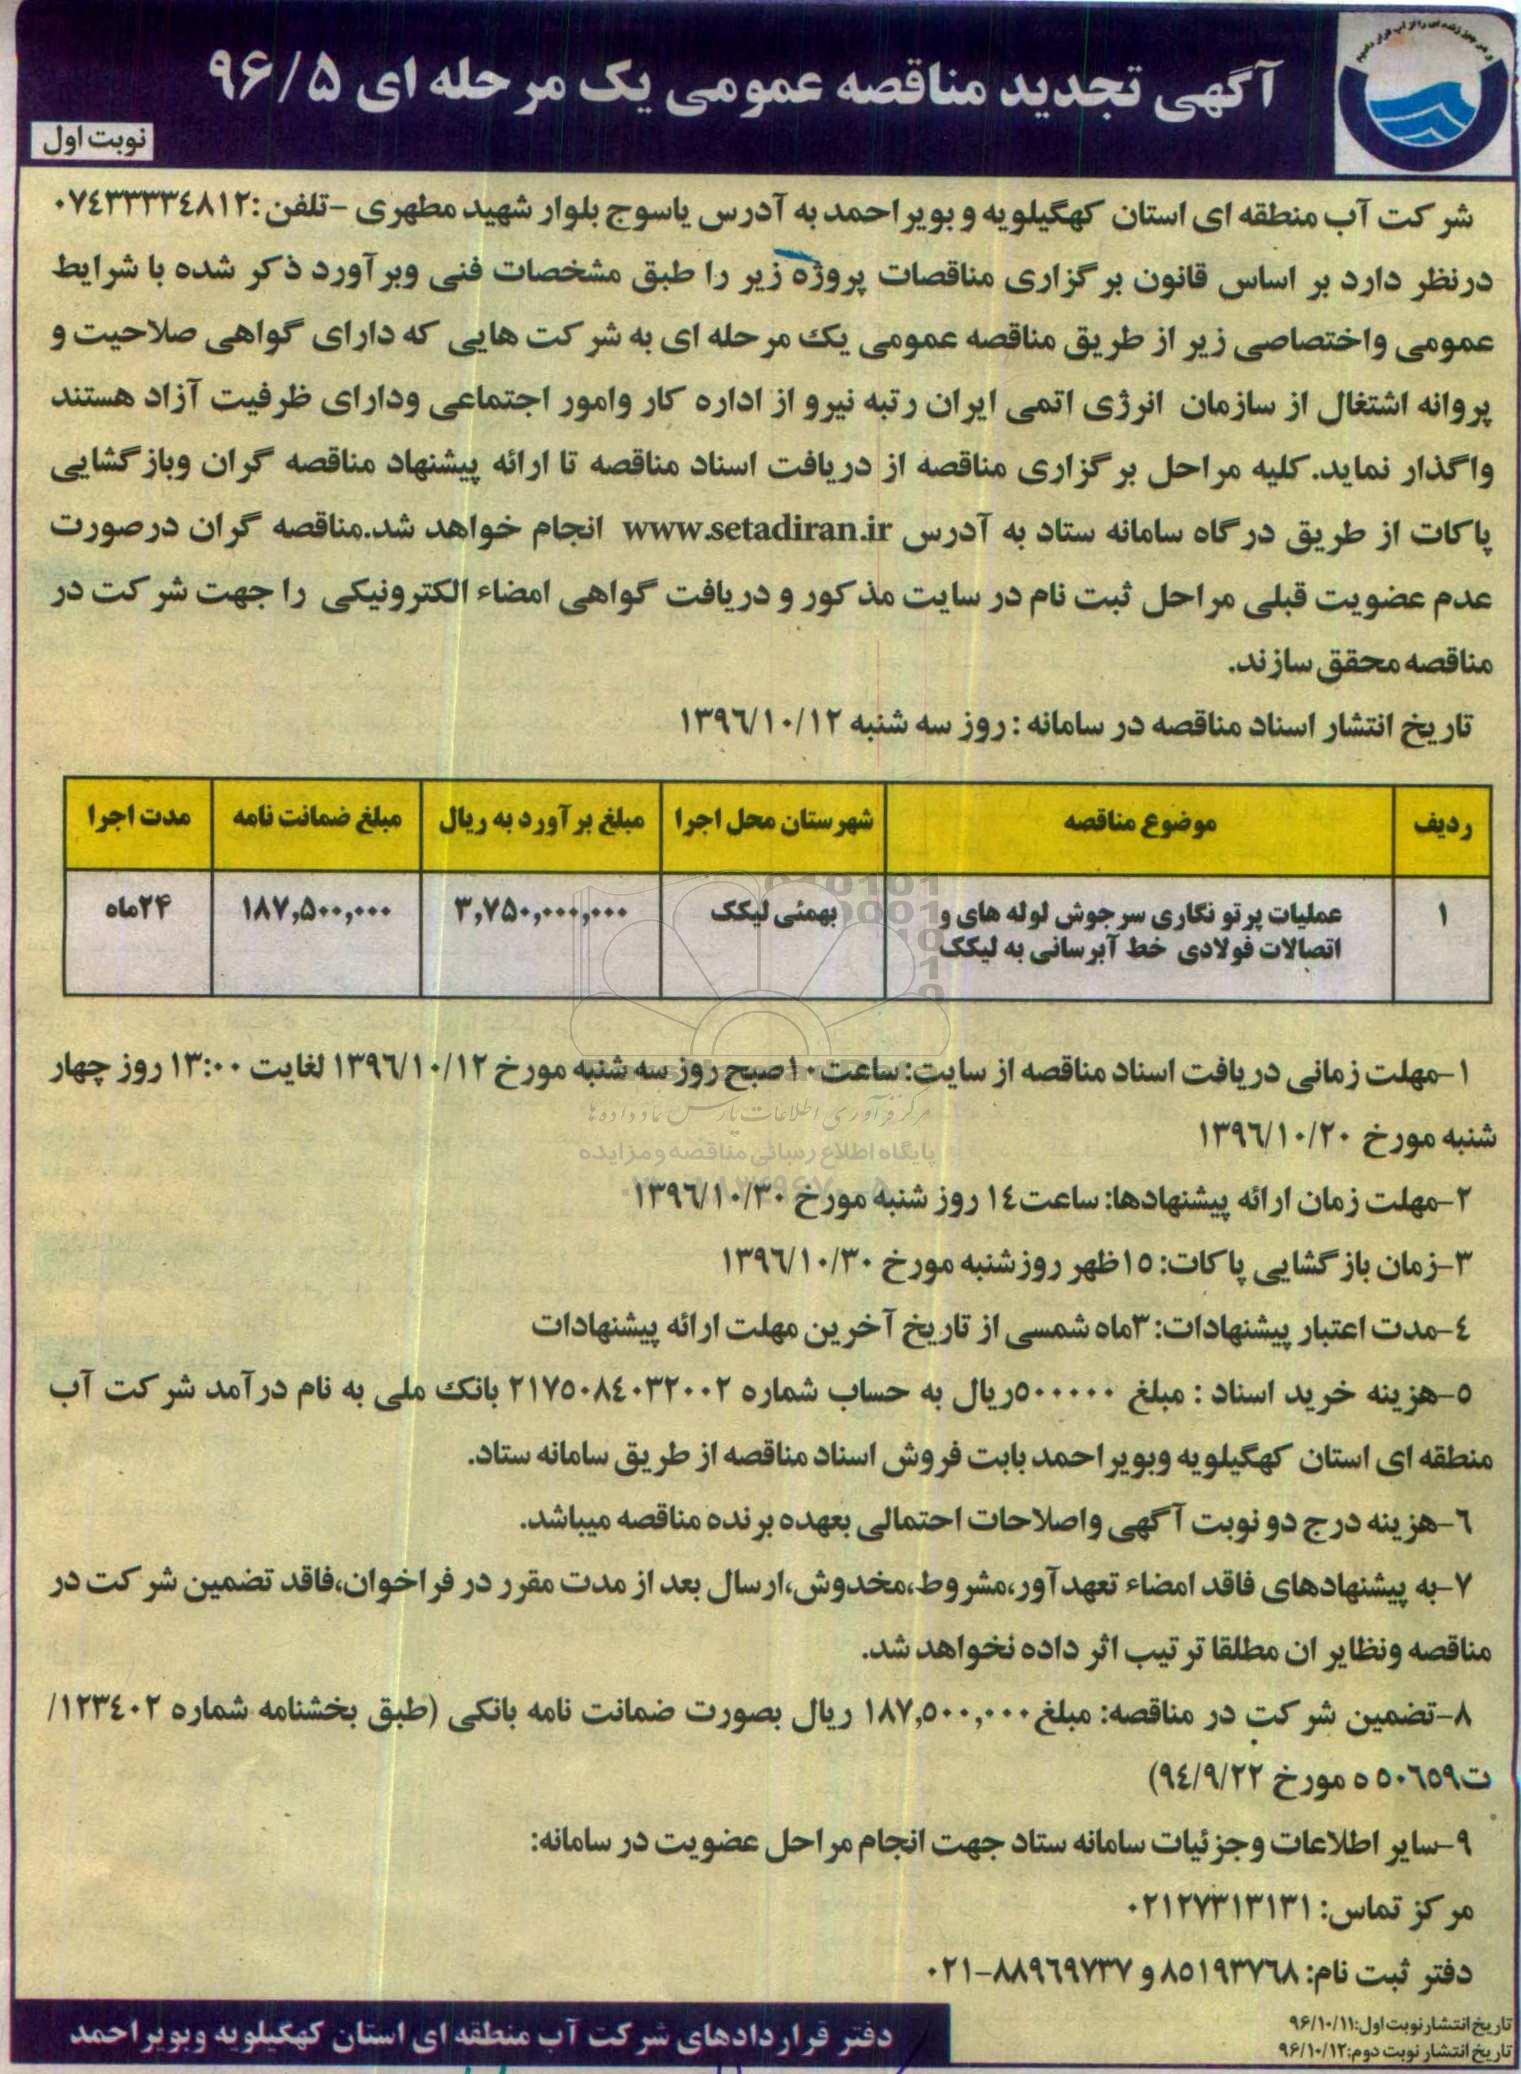 آگهی تجدید مناقصه عمومی یک مرحله ای ۹۶/۵
نوبت اول
شرکت آب منطقه ای استان کهگیلویه و بویراحمد به آدرس یاسوج بلوار شهید مطهری -تلفن: ۰۷۴۳۳۳۳۴۸۱۲
درنظر دارد بر اساس قانون برگزاری مناقصات پروژه زیر را طبق مشخصات فنی وبرآورد ذکر شده با شرایط
عمومی واختصاصی زیر از طریق مناقصه عمومی یک مرحله ای به شرکت هایی که دارای گواهی صلاحیت و
پروانه اشتغال از سازمان انرژی اتمی ایران رتبه نیرو از اداره کار وامور اجتماعی ودارای ظرفیت آزاد هستند
واگذار نماید.کلیه مراحل برگزاری مناقصه از دریافت اسناد مناقصه تا ارائه پیشنهاد مناقصه گران وبازگشایی
پاکات از طریق درگاه سامانه ستاد به آدرس www.setadiran.ir انجام خواهد شد.مناقصه گران درصورت
عدم عضویت قبلی مراحل ثبت نام در سایت مذکور و دریافت گواهی امضاء الکترونیکی را جهت شرکت در
مناقصه محقق سازند.
تاریخ انتشار اسناد مناقصه در سامانه : روز سه شنبه ۱۳۹۶/۱۰/۱۲
ردیف موضوع مناقصه شهرستان محل اجرا مبلغ برآورد به ریال مبلغ ضمانت نامه مدت اجرا
۱ عملیات پرتو نگاری سرجوش لوله های و بهمئی لیکک ۳,۷۵۰,۰۰۰,۰۰۰ ۱۸۷,۵۰۰,۰۰۰ ۲۴ماه
اتصالات فولادی خط آبرسانی به لیکک
۱-مهلت زمانی دریافت اسناد مناقصه از سایت: ساعت۱۰صبح روز سه شنبه مورخ ۱۳۹۶/۱۰/۱۲ لغایت ۱۳:۰۰ روز چهار
شنبه مورخ ۱۳۹۶/۱۰/۲۰
مرکز فرآوری اطلاعات پارس نماد داده ها
پایگاه اطلاع رسانی مناقصه و مزایده
۲-مهلت زمان ارائه پیشنهادها: ساعت۱۴ روز شنبه مورخ ۱۳۹۶/۱۰/۳۰
۳-زمان بازگشایی پاکات: ۱۵ظهر روزشنبه مورخ ۱۳۹۶/۱۰/۳۰
۴-مدت اعتبار پیشنهادات: ۳ماه شمسی از تاریخ آخرین مهلت ارائه پیشنهادات
۵-هزینه خرید اسناد : مبلغ ۵۰۰۰۰۰ریال به حساب شماره ۲۱۷۵۰۸۴۰۳۲۰۰۲ بانک ملی به نام درآمد شرکت آب
منطقه ای استان کهگیلویه وبویراحمد بابت فروش اسناد مناقصه از طریق سامانه ستاد.
۶-هزینه درج دو نوبت آگهی واصلاحات احتمالی بعهده برنده مناقصه میباشد.
۷-به پیشنهادهای فاقد امضاء تعهدآور،مشروط،مخدوش،ارسال بعد از مدت مقرر در فراخوان،فاقد تضمین شرکت در
مناقصه ونظایر ان مطلقا ترتیب اثر داده نخواهد شد.
۸-تضمین شرکت در مناقصه: مبلغ۱۸۷,۵۰۰,۰۰۰ ریال بصورت ضمانت نامه بانکی (طبق بخشنامه شماره ۱۲۳۴۰۲/
ت۵۰۶۵۹ ه مورخ ۹۴/۹/۲۲)
۹-سایر اطلاعات وجزئیات سامانه ستاد جهت انجام مراحل عضویت در سامانه:
مرکز تماس: ۰۲۱۲۷۳۱۳۱۳۱
دفتر ثبت نام: ۸۵۱۹۳۷۶۸ و ۸۸۹۶۹۷۳۷-۰۲۱
تاریخ انتشار نوبت اول: ۹۶/۱۰/۱۱
تاریخ انتشار نوبت دوم: ۹۶/۱۰/۱۲
دفتر قراردادهای شرکت آب منطقه ای استان کهگیلویه وبویراحمد